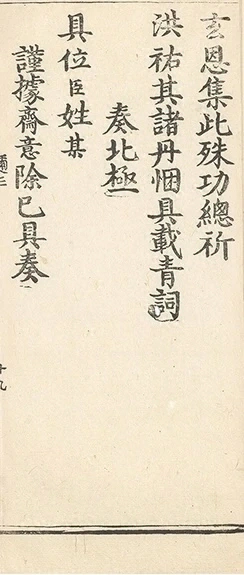 玄恩集此殊功總祈
洪祐其諸丹悃具載青詞
奏北極
具位臣姓某
謹據齋意除已具奏
十九